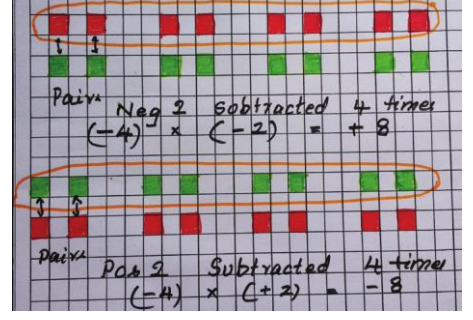 Pairs
Neg 2 Subtracted 4 times
(-4) × (-2) = + 8
Pairs
Pos 2 Subtracted 4 times
(-4) × (+2) = - 8